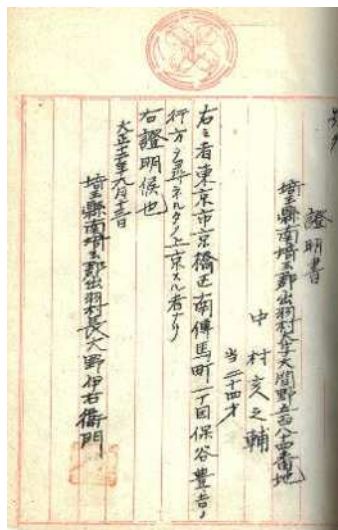 證明書
埼玉縣南埼玉郡出羽村大字大間野五百八十四番地
中村亥之輔
当二十四才
右之者東京市京橋区南傳馬町一丁目保谷豊吉ノ
行方ヲ尋ネルタメ上京スル者ナリ
右證明候也
大正十二年九月十三日
埼玉縣南埼玉郡出羽村長大野伊右衛門